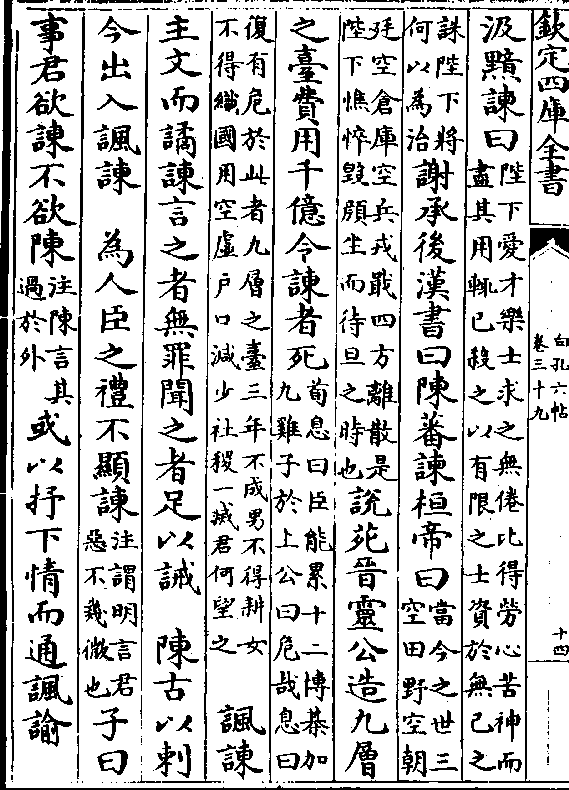 欽定四庫全書
白孔六帖
卷三十九
十四
汲黯諫曰陛下愛才樂士求之無倦比得勞心苦神而盡其用輒已殺之以有限之士資於無已之
誅陛下將何以為治謝承後漢書曰陳蕃諫桓帝曰當今之世三空田野空朝
廷空倉庫空兵戎戢四方離散是陛下憔悴毀顔坐而待旦之時也說苑晉靈公造九層
之臺費用千億令諫者死荀息曰臣能累十二博棊加九雞子於上公曰危哉息曰
復有危於此者九層之臺三年不成男不得耕女不得織國用空虛戶口減少社稷一滅君何望之 諷諫
主文而譎諫言之者無罪聞之者足以誡 陳古以刺
今出入諷諫 為人臣之禮不顯諫注謂明言君惡不幾微也子曰
事君欲諫不欲陳注陳言其過於外或以抒下情而通諷諭